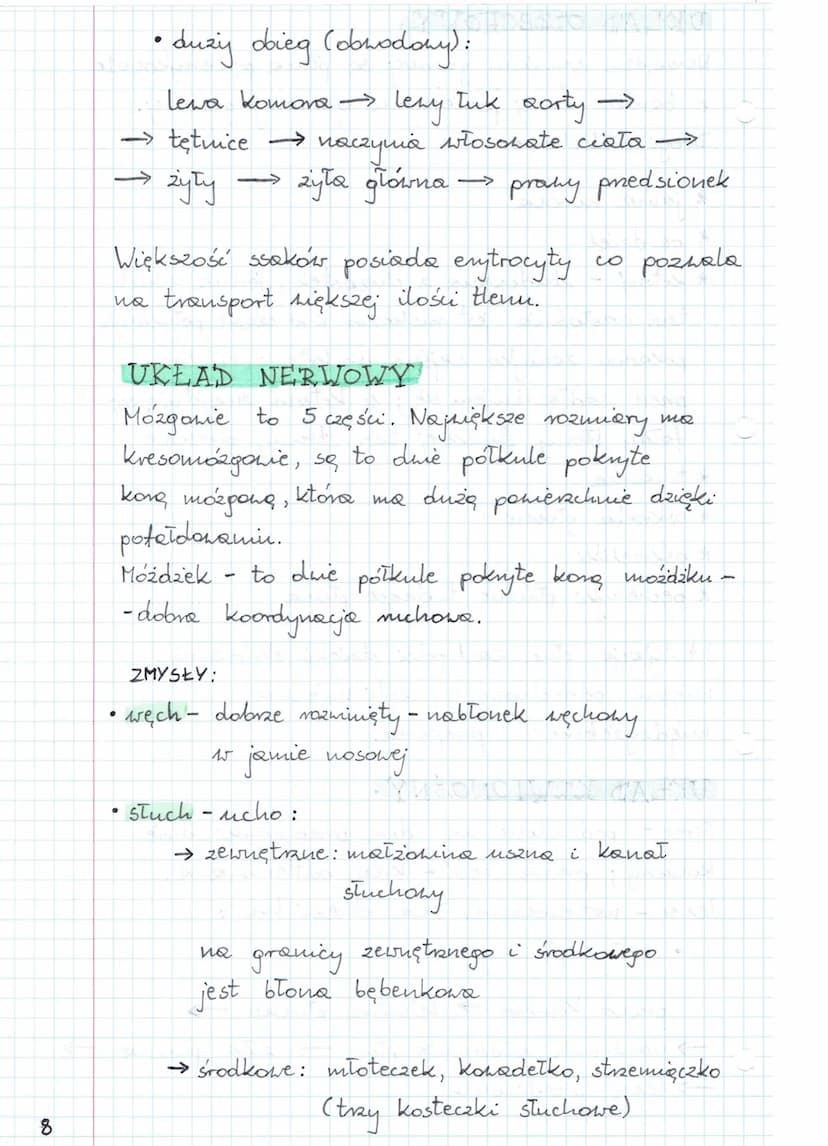 • duży obieg (obwodowy):
lewa komora → lewy łuk aorty →
→ tętnice → naczynia włosowate ciała →
→ żyły → żyła główna → prawy przedsionek
Większość ssaków posiada erytrocyty co pozwala
na transport większej ilości tlenu.
UKŁAD NERWOWY
Mózgowie to 5 części. Największe rozmiary ma
kresomózgowie, są to dwie półkule pokryte
korą mózgową, która ma dużą powierzchnie dzięki
pofałdowaniu.
Móżdżek - to dwie półkule pokryte korą móżdżku -
- dobra koordynacja ruchowa.
ZMYSŁY:
• węch - dobrze rozwinięty - nabłonek węchowy
w jamie nosowej
• słuch - ucho:
→ zewnętrzne: małżowina uszna i kanał
słuchowy
na granicy zewnętrznego i środkowego
jest błona bębenkowa
→ środkowe: młoteczek, kowadełko, strzemiączko
(trzy kosteczki słuchowe)
8